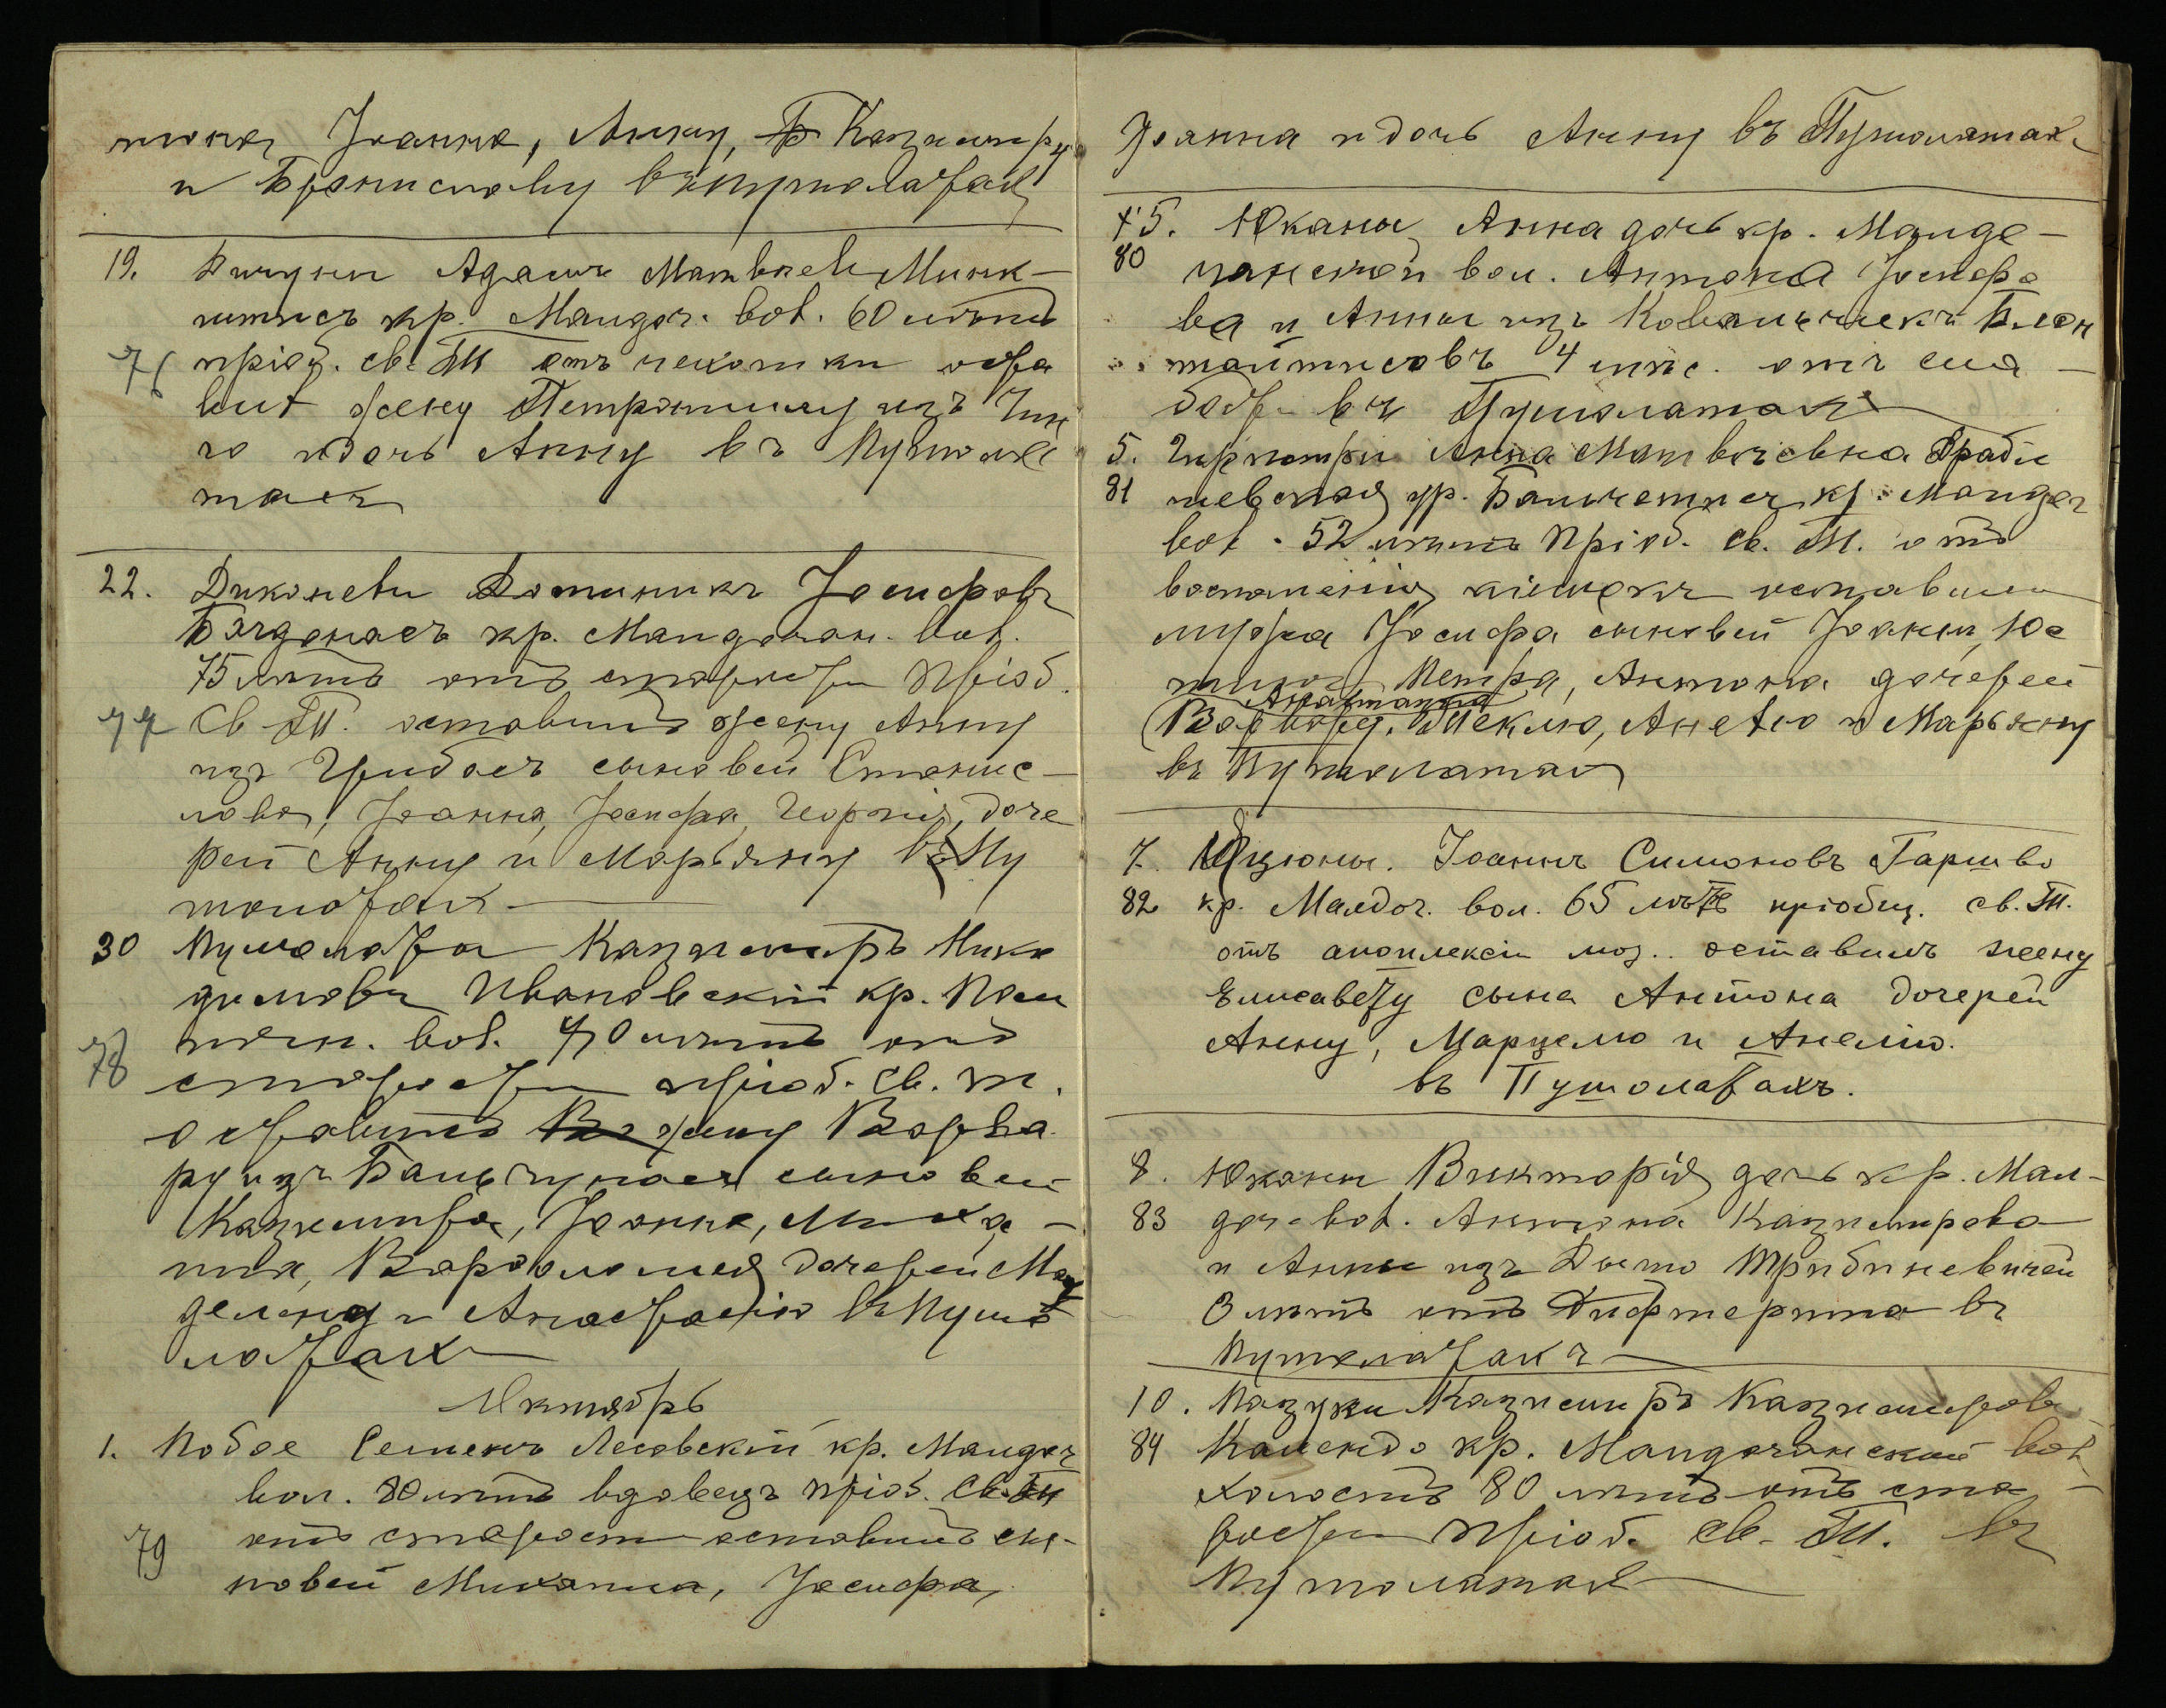 тона, Іоанна, Анну, Казимиру
и Брониславу въ Пушолатах
19. Дичуни Адамъ Матвѣевъ Минк-
штисъ кр. Малдоч. вол. 60 лѣтъ
76 пріоб. св. Т. отъ чехотки оста
вил жену Петронилу изъ
и дочь Анну въ Пушола
тах
22. Диконеви Доминикъ Іосифовъ
Богдонасъ кр. Малдочан. вол.
75 лѣтъ отъ старости пріоб.
77 св. Т. оставилъ жену Анну
изъ Грибасъ сыновей Станис-
лава, Іоанна, Іосифа, Георгія, доче
рей Анну и Марьянну въ Пу
шолатах
30 Пушолаты Казимиръ Нико
димовъ Ивановскій кр.
вол. 70 лѣтъ отъ
78 старости пріоб. св. Т.
оставилъ жену Варва
ру изъ Бальчунасъ сыновей
Казимира, Іоанна, Миха-
ила, Варфоломея дочерей Маг
делену и Анастасію въ Пушо
латах
Октябрь
1. Побое Семенъ Лесовскій кр. Малдоч
вол. 80 лѣтъ вдовецъ пріоб. св. Т.
79 отъ старости оставилъ сы-
новей Михаила, Іосифа,
Іоанна и дочь Анну въ Пушолатах
5. Юканы Анна дочь кр. Малдо-
80 чанской вол. Антона Іосифо
ва и Анны изъ
4 мѣс. отъ сла-
бости въ Пушолатах
5. Анна Матвѣевна
81 ур. кр. Малдоч
вол. 52 лѣтъ пріоб. св. Т. отъ
воспаленія кишекъ оставила
мужа Іосифа сыновей Іоанна, Юс
тина, Петра, Антона дочерей
Анастазію
(Варвару, Теклю, Анелю и Марьянну
въ Пушолатах
7. Іоаннъ Симоновъ Гаршво
82 кр. Малдоч. вол. 65 лѣтъ пріобщ. св. Т.
отъ апоплексіи моз.. оставилъ жену
Елисавету сына Антона дочерей
Анну, Марцелю и Анелію.
въ Пушолатахъ.
8. Юканы Викторія дочь кр. Мал-
83 доч. вол. Антона Казимирова
и Анны изъ Трибиневичей
3 лѣтъ отъ Дифтерита въ
Пушолатахъ
10. Пазуки Казимиръ Казимировъ
84 Календо кр. Малдочанской вол
холостъ 80 лѣтъ отъ ста-
рости пріоб. св. Т. въ
Пушолатах